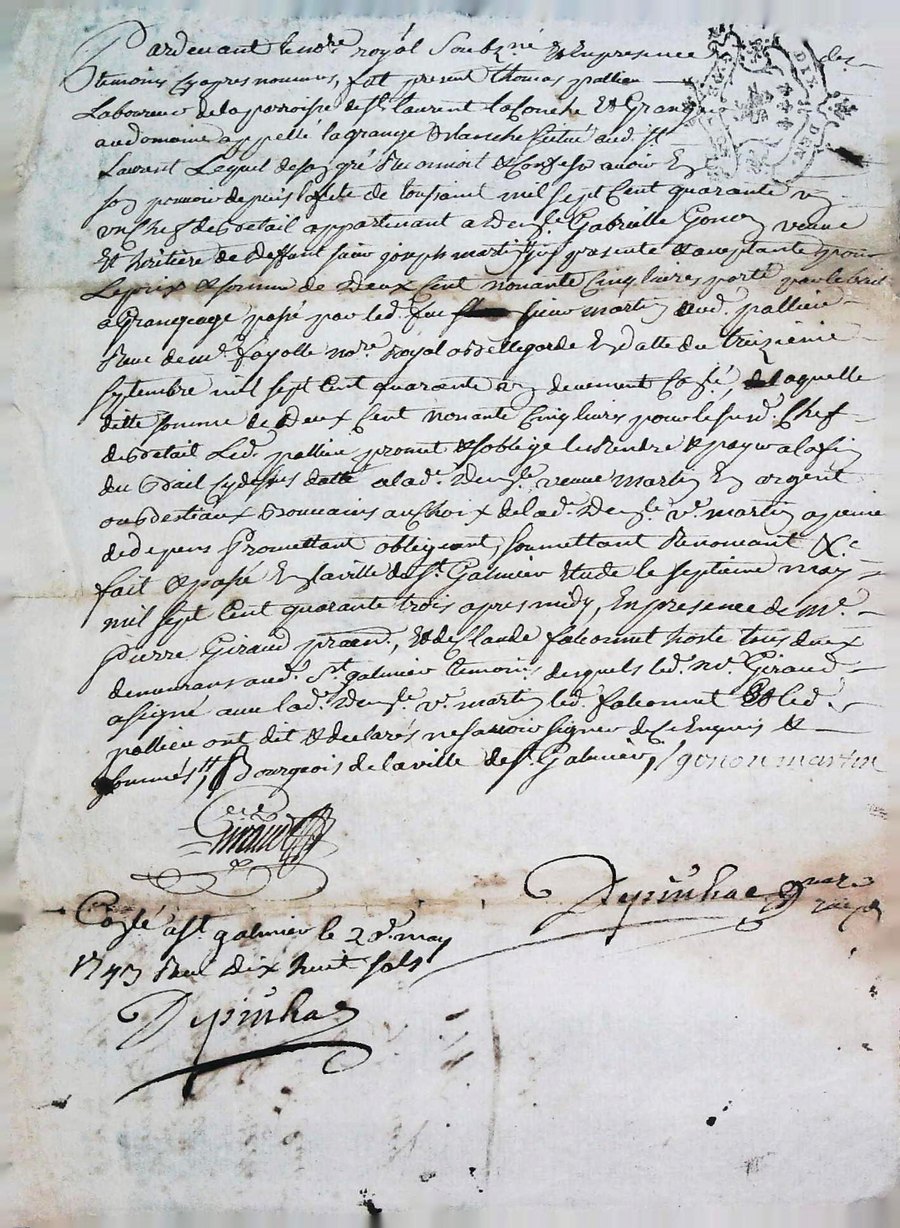 Pardevant le no.re royal soubz.né et en presence des
temoins cy apres nommés, fut present thomas pallieu
Laboureur de la parroisse de St. laurent la Conche et Granger
au domaine appellé la grange blanche situé aud. St.
Laurent Lequel de son gré Reconnoit et Confesse avoir En
son pouvoir depuis la fete de toussaint mil sept Cent quarante un
un Chef de betail appartenant a dem.lle Gabrielle Gonon veuve
Et heritiere de deffunt sieur joseph martin icy presente et acceptante pour
Le prix et somme de Deux Cent nonante Cinq livres porté par le bail
a Grangeage passé par led. feu sieur martin aud. pallieu
Receu de me. fayolle no.re Royal a bellegarde En datte du treizieme
septembre mil sept Cent quarante un deuement Coslé, de laquelle
ditte somme de Deux Cent nonante Cinq livres pour le susd. Chef
de betail Led. pallieu promet et s'oblige le Rendre et payer a la fin
du bail cy dessus datté a lad. Dem.lle veuve martin En argent
ou bestiaux Bonnains au Choix de lad. Dem.lle v.e martin a peine
de depens Promettant obligeant, soumettant Renonceant &c.
fait et passé En la ville de St. Galmier Etude le septieme may
mil sept Cent quarante trois apres midy, En presence de me.
pierre Giraud, et de Claude falconnet hoste tous deux
demeurans aud. St. galmier temoins desquels led. me. Giraud
a signé avec lad. Dem.lle v.e martin led. falconnet Et led.
pallieu ont dit et declarés ne savoir signer de Ce Enquis et
sommés ./. Bourgeois de la ville de St. Galmier, / gonon martin
Giraud
Depinhac
Coslé a St. galmier le 20e. may
1743 Receu dix huit sols
Depinhac